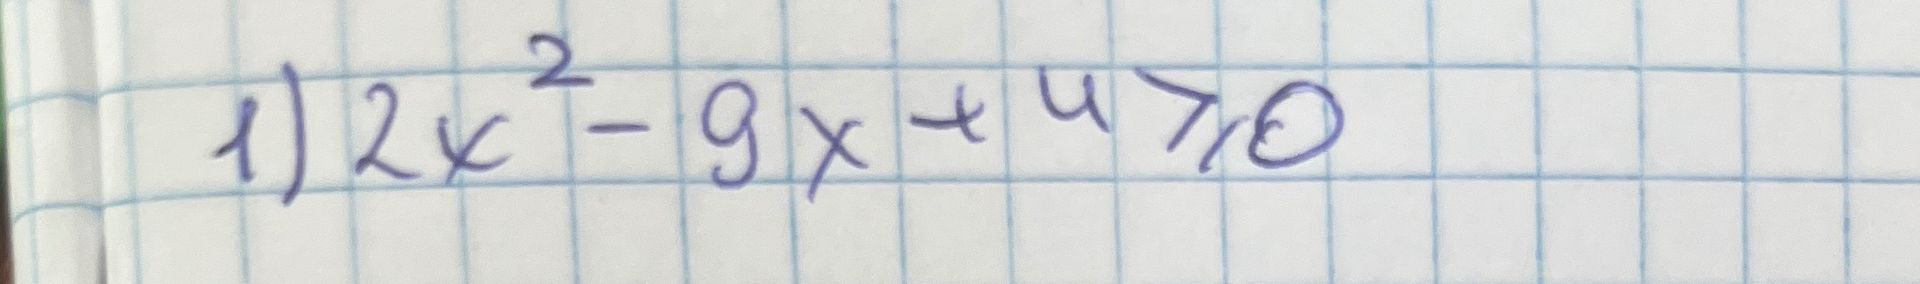 1) 2x² - 9x + 4 ⩾ 0